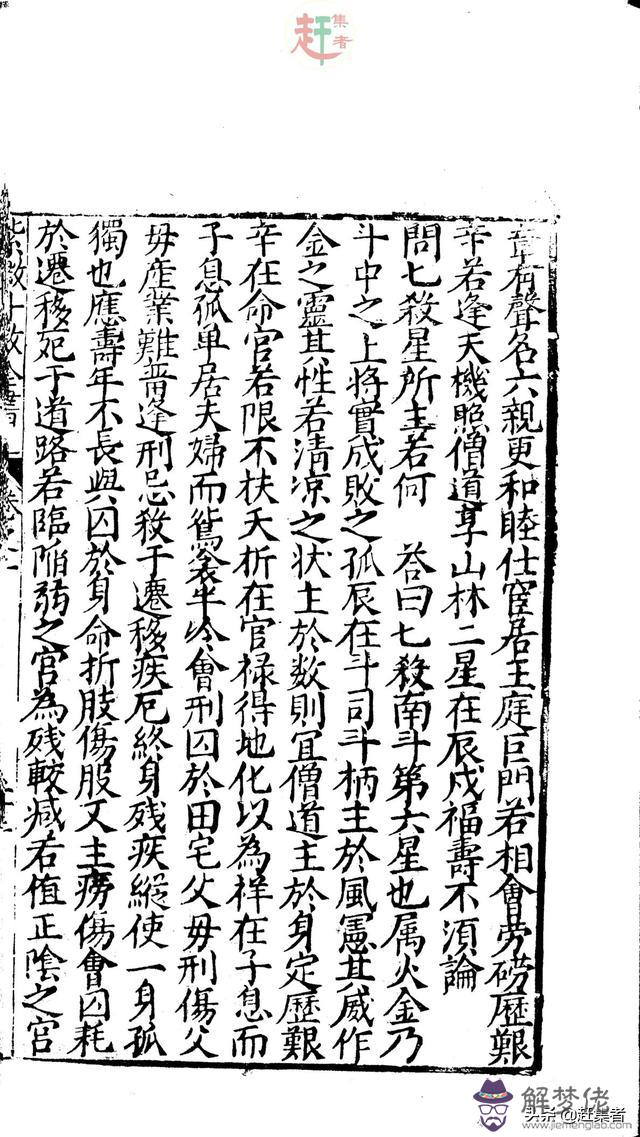 赶集者
章有聲名六親更和睦仕宦居王庭巨門若相會勞磅歷艱
辛若逢天機照僧道享山林二星在辰戌福壽不須論
問七殺星所主若何 荅曰七殺南斗第六星也属火金乃
斗中之上將實成敗之孤辰在斗司斗柄主於風憲其威作
金之靈其性若清凉之状主於数則宜僧道主於身定歷艱
辛在命宫若限不扶夭折在官禄得地化以為祥在子息而
子息孤单居夫婦而鴛衾半冷會刑囚於田宅父毋刑傷父
毋産業難畱逢刑忌殺于遷移疾厄終身残疾縱使一身孤
獨也應壽年不長與囚於身命折肢傷股又主癆傷會囚耗
於遷移死于道路若臨陥弱之宫為残較減若值正陰之宫
解梦佬
www.jiemenglao.com
头条@赶集者